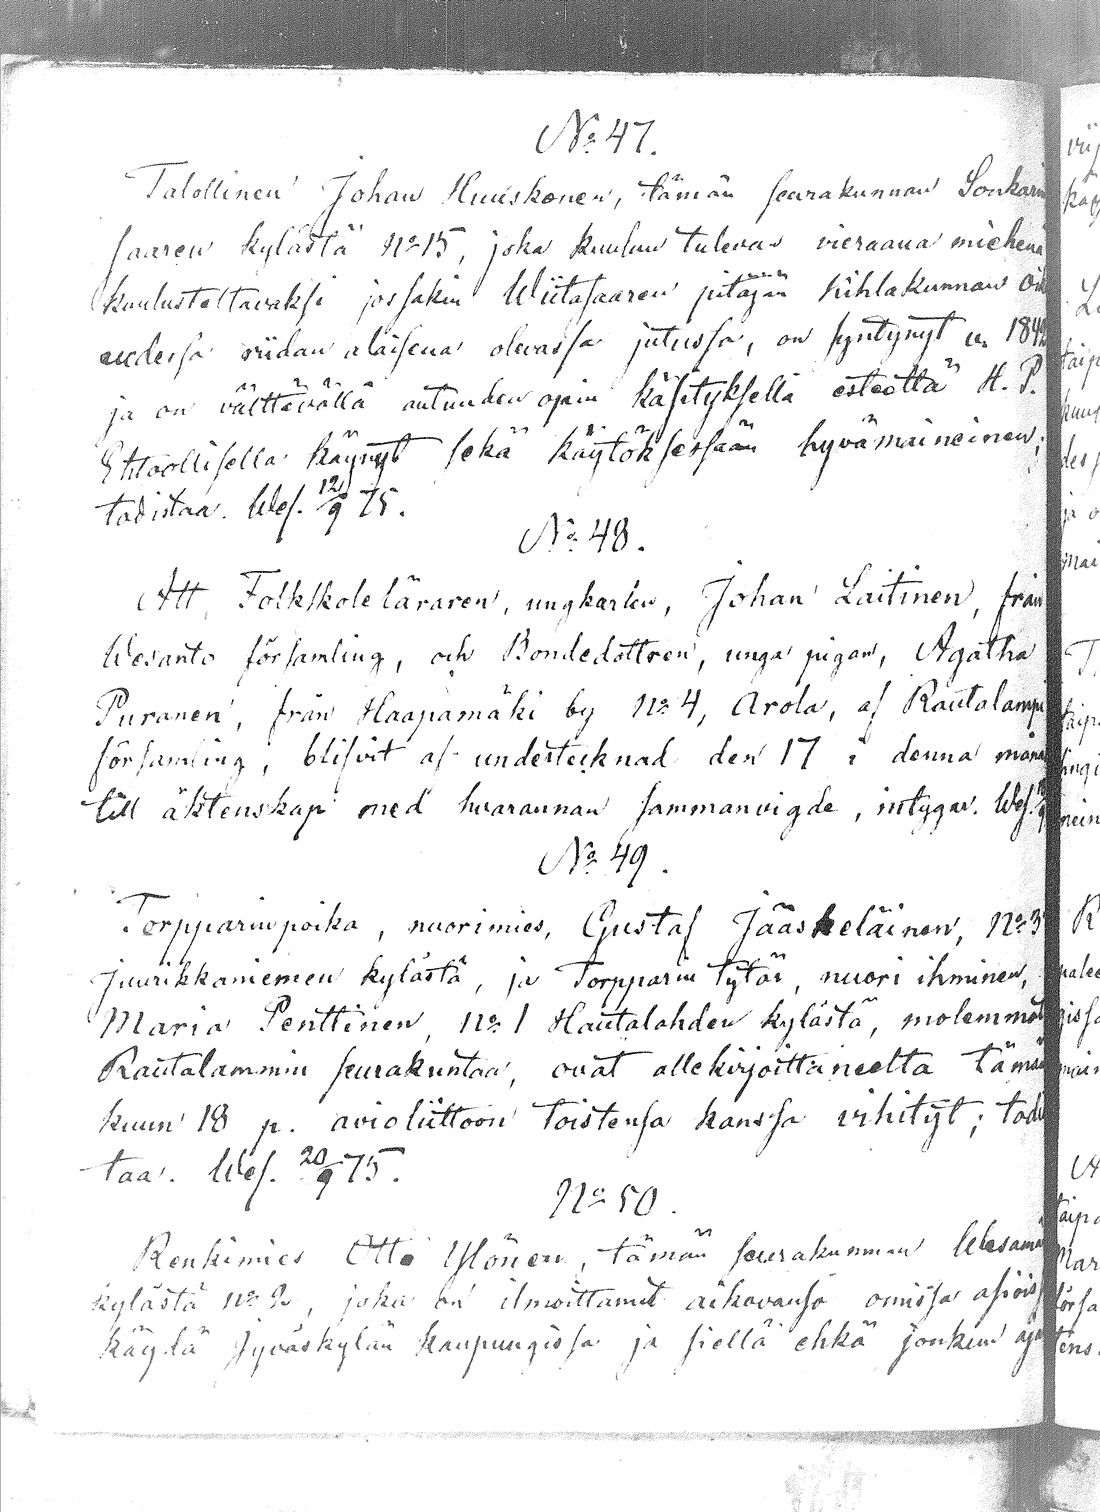 No 47.
Talollinen Johan Huuskonen, tämän seurakunnan Sonkarin
saaren kylästä No 15, joka kuuluu tulevan vieraana miehenä
kuulusteltavaksi jossakin Wiitasaaren pitäjän kihlakunnan oik
eudessa riidan alaisena olevassa jutussa, on syntynyt v. 184
ja on välttävällä autuuden opin käsityksellä esteettä H. P.
Ehtoollisella käynyt sekä käytöksessään hyvämaineinen;
todistaa. Wes. 12/9 75.
No 48.
Att Folkskoleläraren, ungkarlen, Johan Laitinen, från
Wesanto församling, och Bondedottren, unga pigan, Agatha
Puranen, från Haapamäki by No 4, Arola, af Rautalampi
församling, blifvit af undertecknad den 17 i denna måna
till äktenskap med hvarannan sammanvigde, intygar. Wes.
No 49.
Torpparinpoika, nuorimies, Gustaf Jääskeläinen, No 3
Juurikkaniemen kylästä, ja Torpparin tytär, nuori ihminen,
Maria Penttinen, No 1 Hautalahden kylästä, molemmat
Rautalammin seurakuntaa, ovat allekirjoittaneelta tämän
kuun 18 p. avioliittoon toistensa kanssa vihityt; todis
taa. Wes. 20/9 75.
No 50.
Renkimies Otto Ylönen, tämän seurakunnan Wesama
kylästä No 2, joka on ilmoittanut aikovansa omissa asiois
käydä Jyväskylän kaupungissa ja siellä ehkä jonkun aja